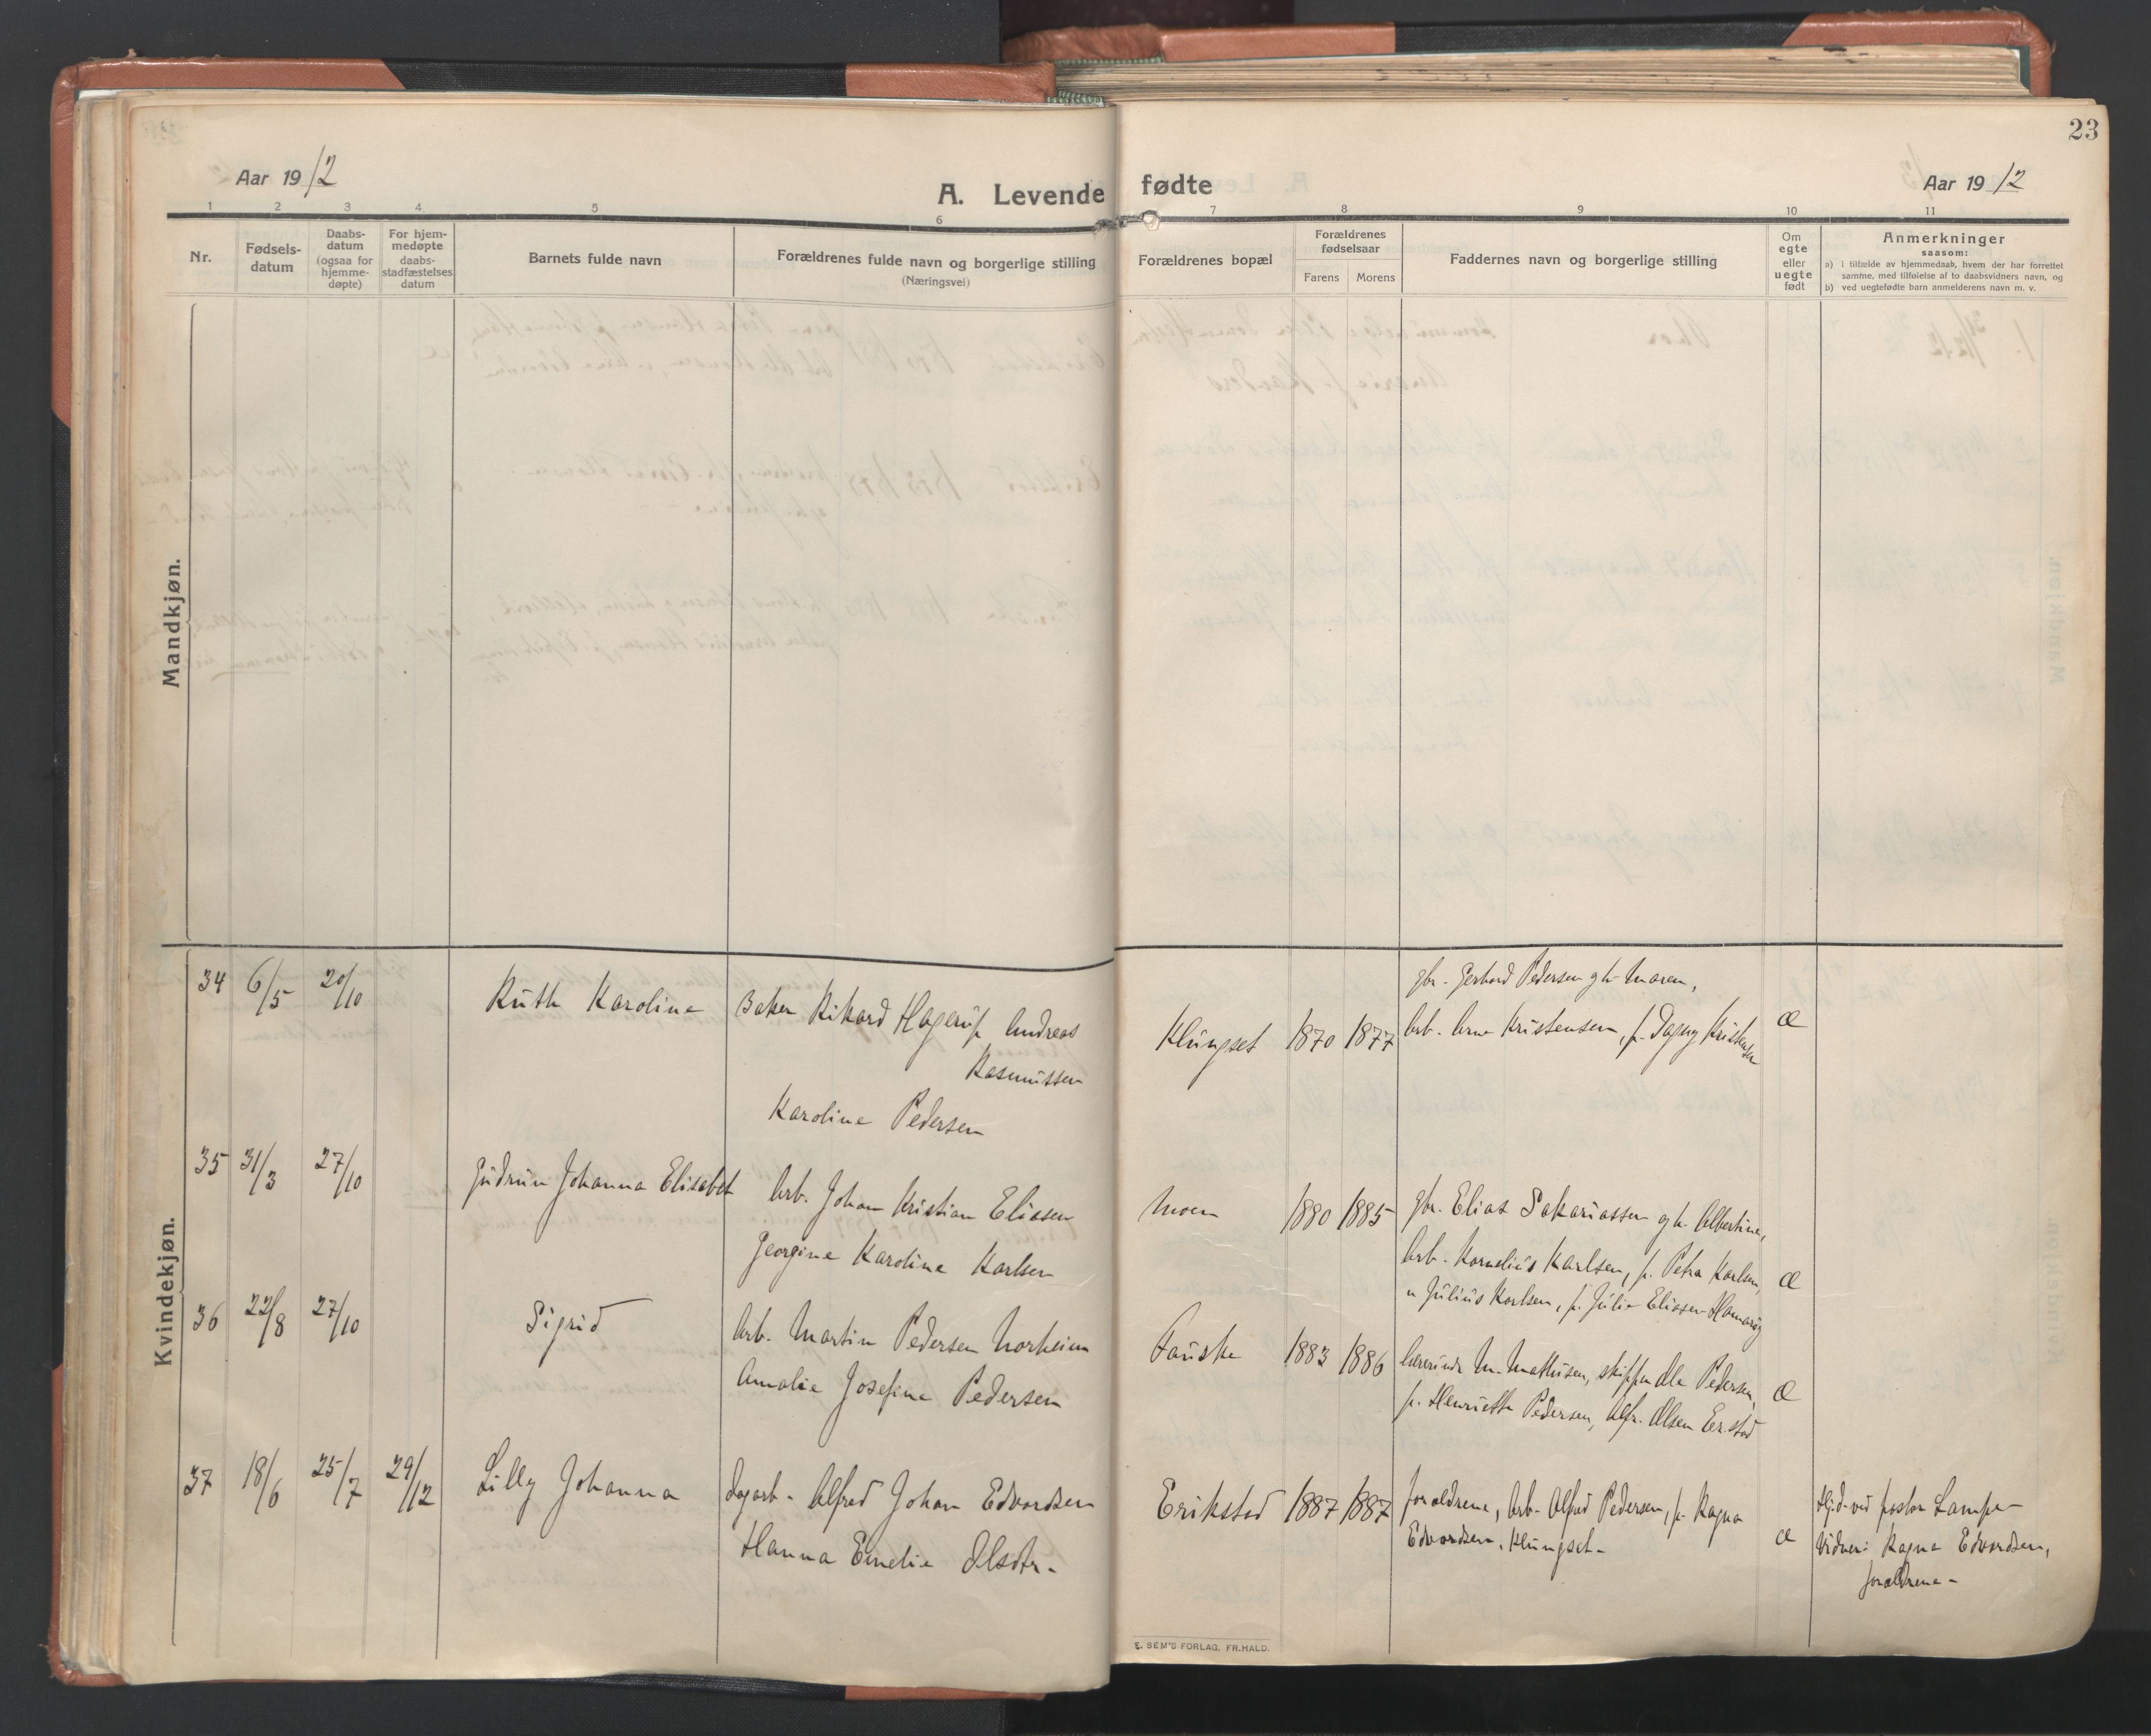 23
Aar 1912
A. Levende fødte
Aar 1912
1 2 3 4 5 6 7 8 9 10 11
Nr.
Fødsels-
datum
Daabs-
datum
(ogsaa for
hjemme-
døpte)
For hjem-
medøpte
daabs-
stadfæstelses
datum
Barnets fulde navn
Forældrenes fulde navn og borgerlige stilling
(Næringsvei)
Forældrenes bopæl
Forældrenes
fødselsaar
Farens
Morens
Faddernes navn og borgerlige stilling
Om
egte
eller
uegte
født
Anmerkninger
saasom:
a) i tilfælde av hjemmedaab, hvem der har forrettet
samme, med tilføielse af to daabsvidners navn, og
b) ved uegtefødte barn anmelderens navn m. v.
Mandkjøn.
Kvindekjøn.
34 6/5 20/10 Ruth Karoline
Baker Rikard Hagerup Andreas
Rasmussen
Karoline Pedersen
Klungset 1870 1877
gbr. Gerhard Pedersen og h. Maren,
Arb. Arne Kristensen, p. Dagny Kristensen
æ
35 31/3 27/10 Gudrun Johanna Elisabet
Arb. Johan Kristian Eliasen
Georgine Karoline Karlsen
Moen 1880 1885
gbr. Elias Sakariassen og h. Albertine,
Arb. Kornelius Karlsen, p. Petra Karlsen,
" Julius Karlsen, p. Julie Eliasen Hamarøy
æ
36 22/8 27/10 Sigrid
Arb. Martin Pedersen Norheim
Amalie Josefine Pedersen
Fauske 1883 1886
Lærerinde M. Mathisen, skipper Ole Pedersen,
p. Henriette Pedersen, Alfr. Olsen Er.stad
æ
37 18/6 25/7 29/12 Lilly Johanna
Dagarb. Alfred Johan Edvardsen
Hanna Emelie Olsdtr.
Erikstad 1887 1887
forældrene, Arb. Alfred Pedersen, p. Ragna
Edvardsen, Klungset.
æ
Hjd. ved pastor Lampe
Vidner: Ragna Edvardsen,
forældrene.
E. SEM'S FORLAG, FR.HALD.